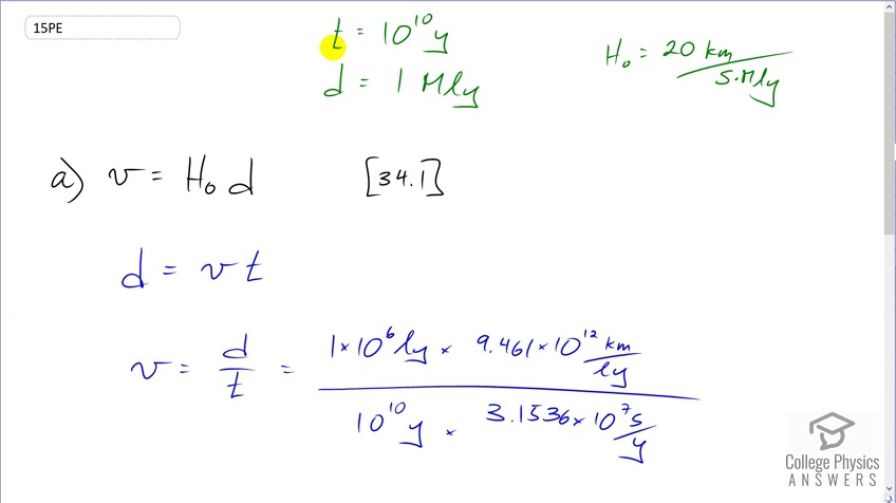 15PE
t = 10¹⁰ y
d = 1 Mly
H₀ = 20 km/s·Mly
a) v = H₀ d [34.1]
d = v t
v = d/t = (1×10⁶ ly × 9.461×10¹² km/ly) / (10¹⁰ y × 3.1536×10⁷ s/y)
College Physics
ANSWERS